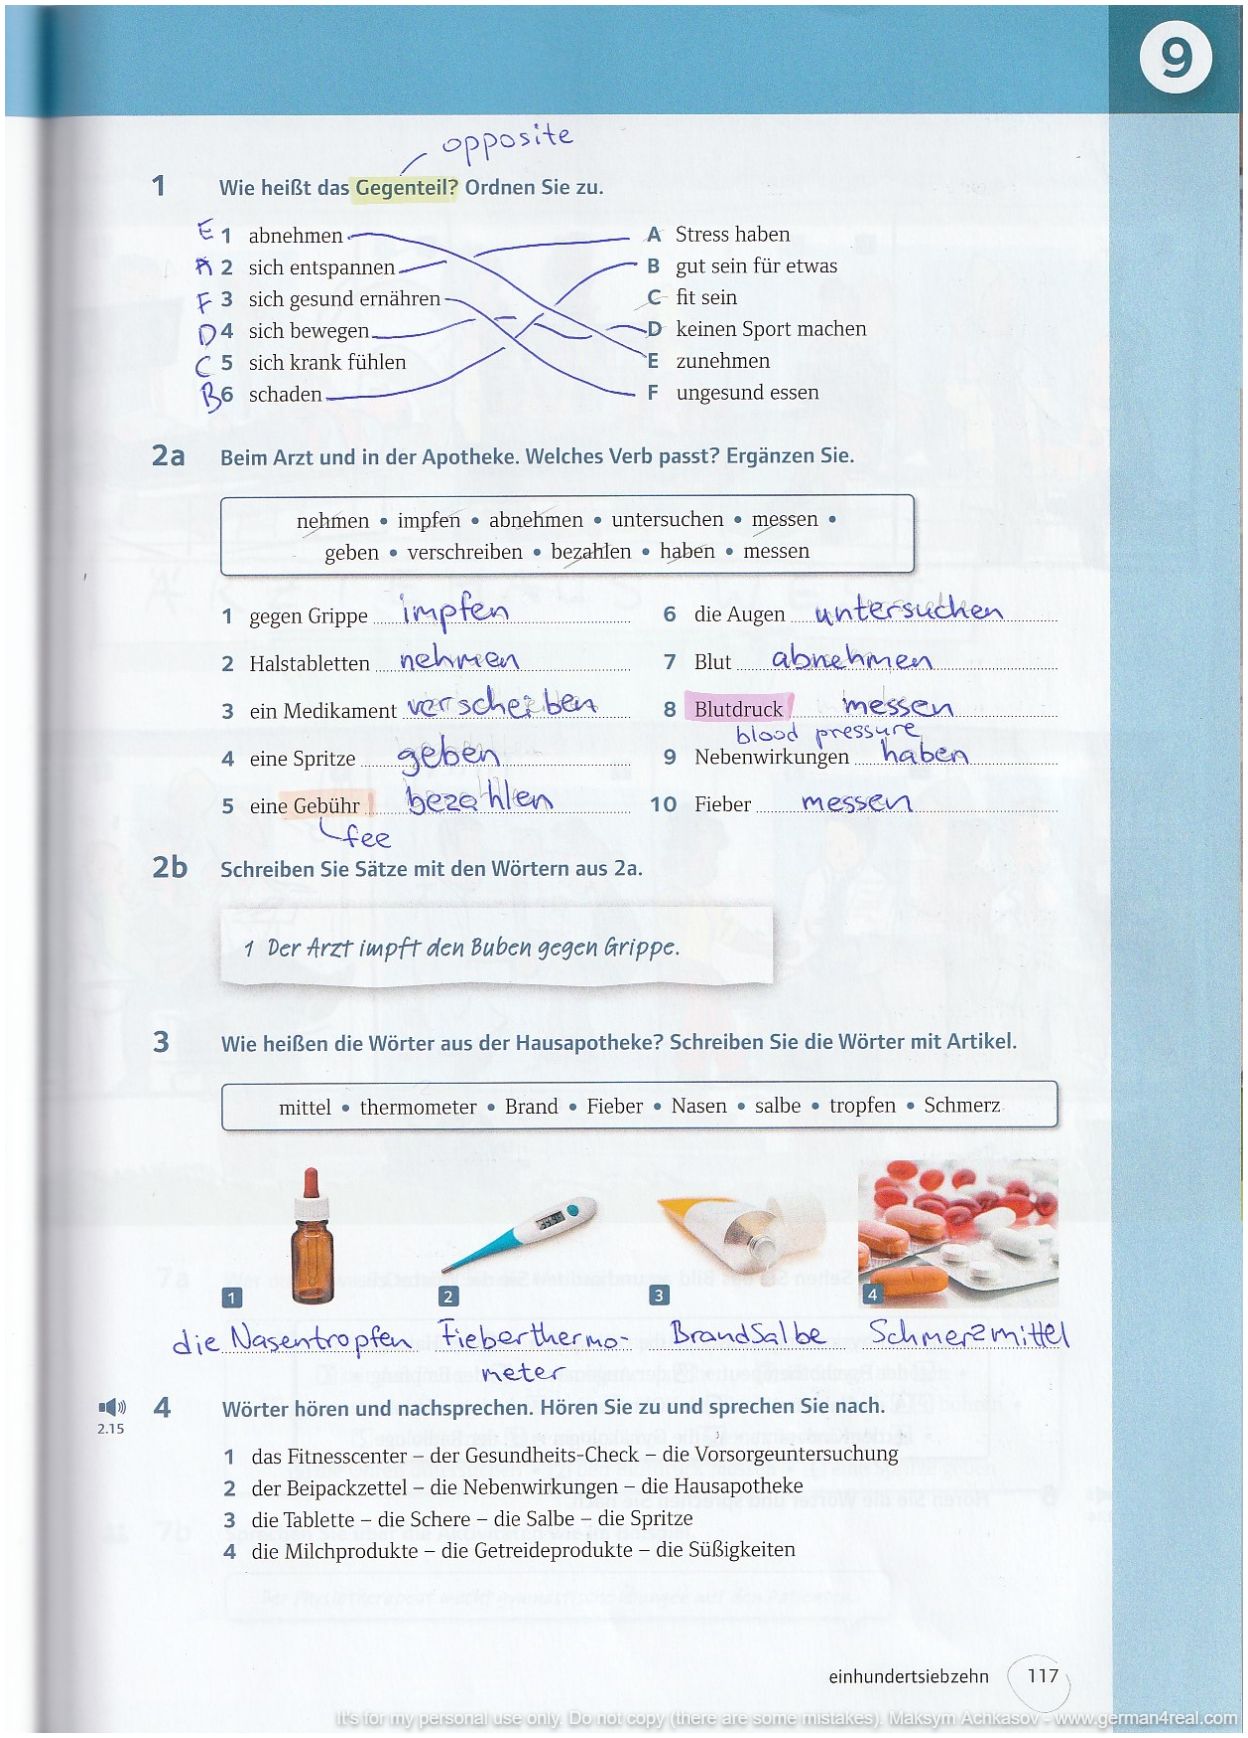 9
opposite
1 Wie heißt das Gegenteil? Ordnen Sie zu.
E 1 abnehmen A Stress haben
A 2 sich entspannen B gut sein für etwas
F 3 sich gesund ernähren C fit sein
D 4 sich bewegen D keinen Sport machen
C 5 sich krank fühlen E zunehmen
B 6 schaden F ungesund essen
2a Beim Arzt und in der Apotheke. Welches Verb passt? Ergänzen Sie.
nehmen • impfen • abnehmen • untersuchen • messen •
geben • verschreiben • bezahlen • haben • messen
1 gegen Grippe impfen 6 die Augen untersuchen
2 Halstabletten nehmen 7 Blut abnehmen
3 ein Medikament verscheiben 8 Blutdruck messen
blood pressure
4 eine Spritze geben 9 Nebenwirkungen haben
5 eine Gebühr bezahlen 10 Fieber messen
fee
2b Schreiben Sie Sätze mit den Wörtern aus 2a.
1 Der Arzt impft den Buben gegen Grippe.
3 Wie heißen die Wörter aus der Hausapotheke? Schreiben Sie die Wörter mit Artikel.
mittel • thermometer • Brand • Fieber • Nasen • salbe • tropfen • Schmerz
1 2 3 4
die Nasentropfen Fieberthermo- BrandSalbe Schmerzmittel
meter
4 Wörter hören und nachsprechen. Hören Sie zu und sprechen Sie nach.
2.15
1 das Fitnesscenter – der Gesundheits-Check – die Vorsorgeuntersuchung
2 der Beipackzettel – die Nebenwirkungen – die Hausapotheke
3 die Tablette – die Schere – die Salbe – die Spritze
4 die Milchprodukte – die Getreideprodukte – die Süßigkeiten
einhundertsiebzehn 117
It's for my personal use only. Do not copy (there are some mistakes). Maksym Achkasov - www.german4real.com